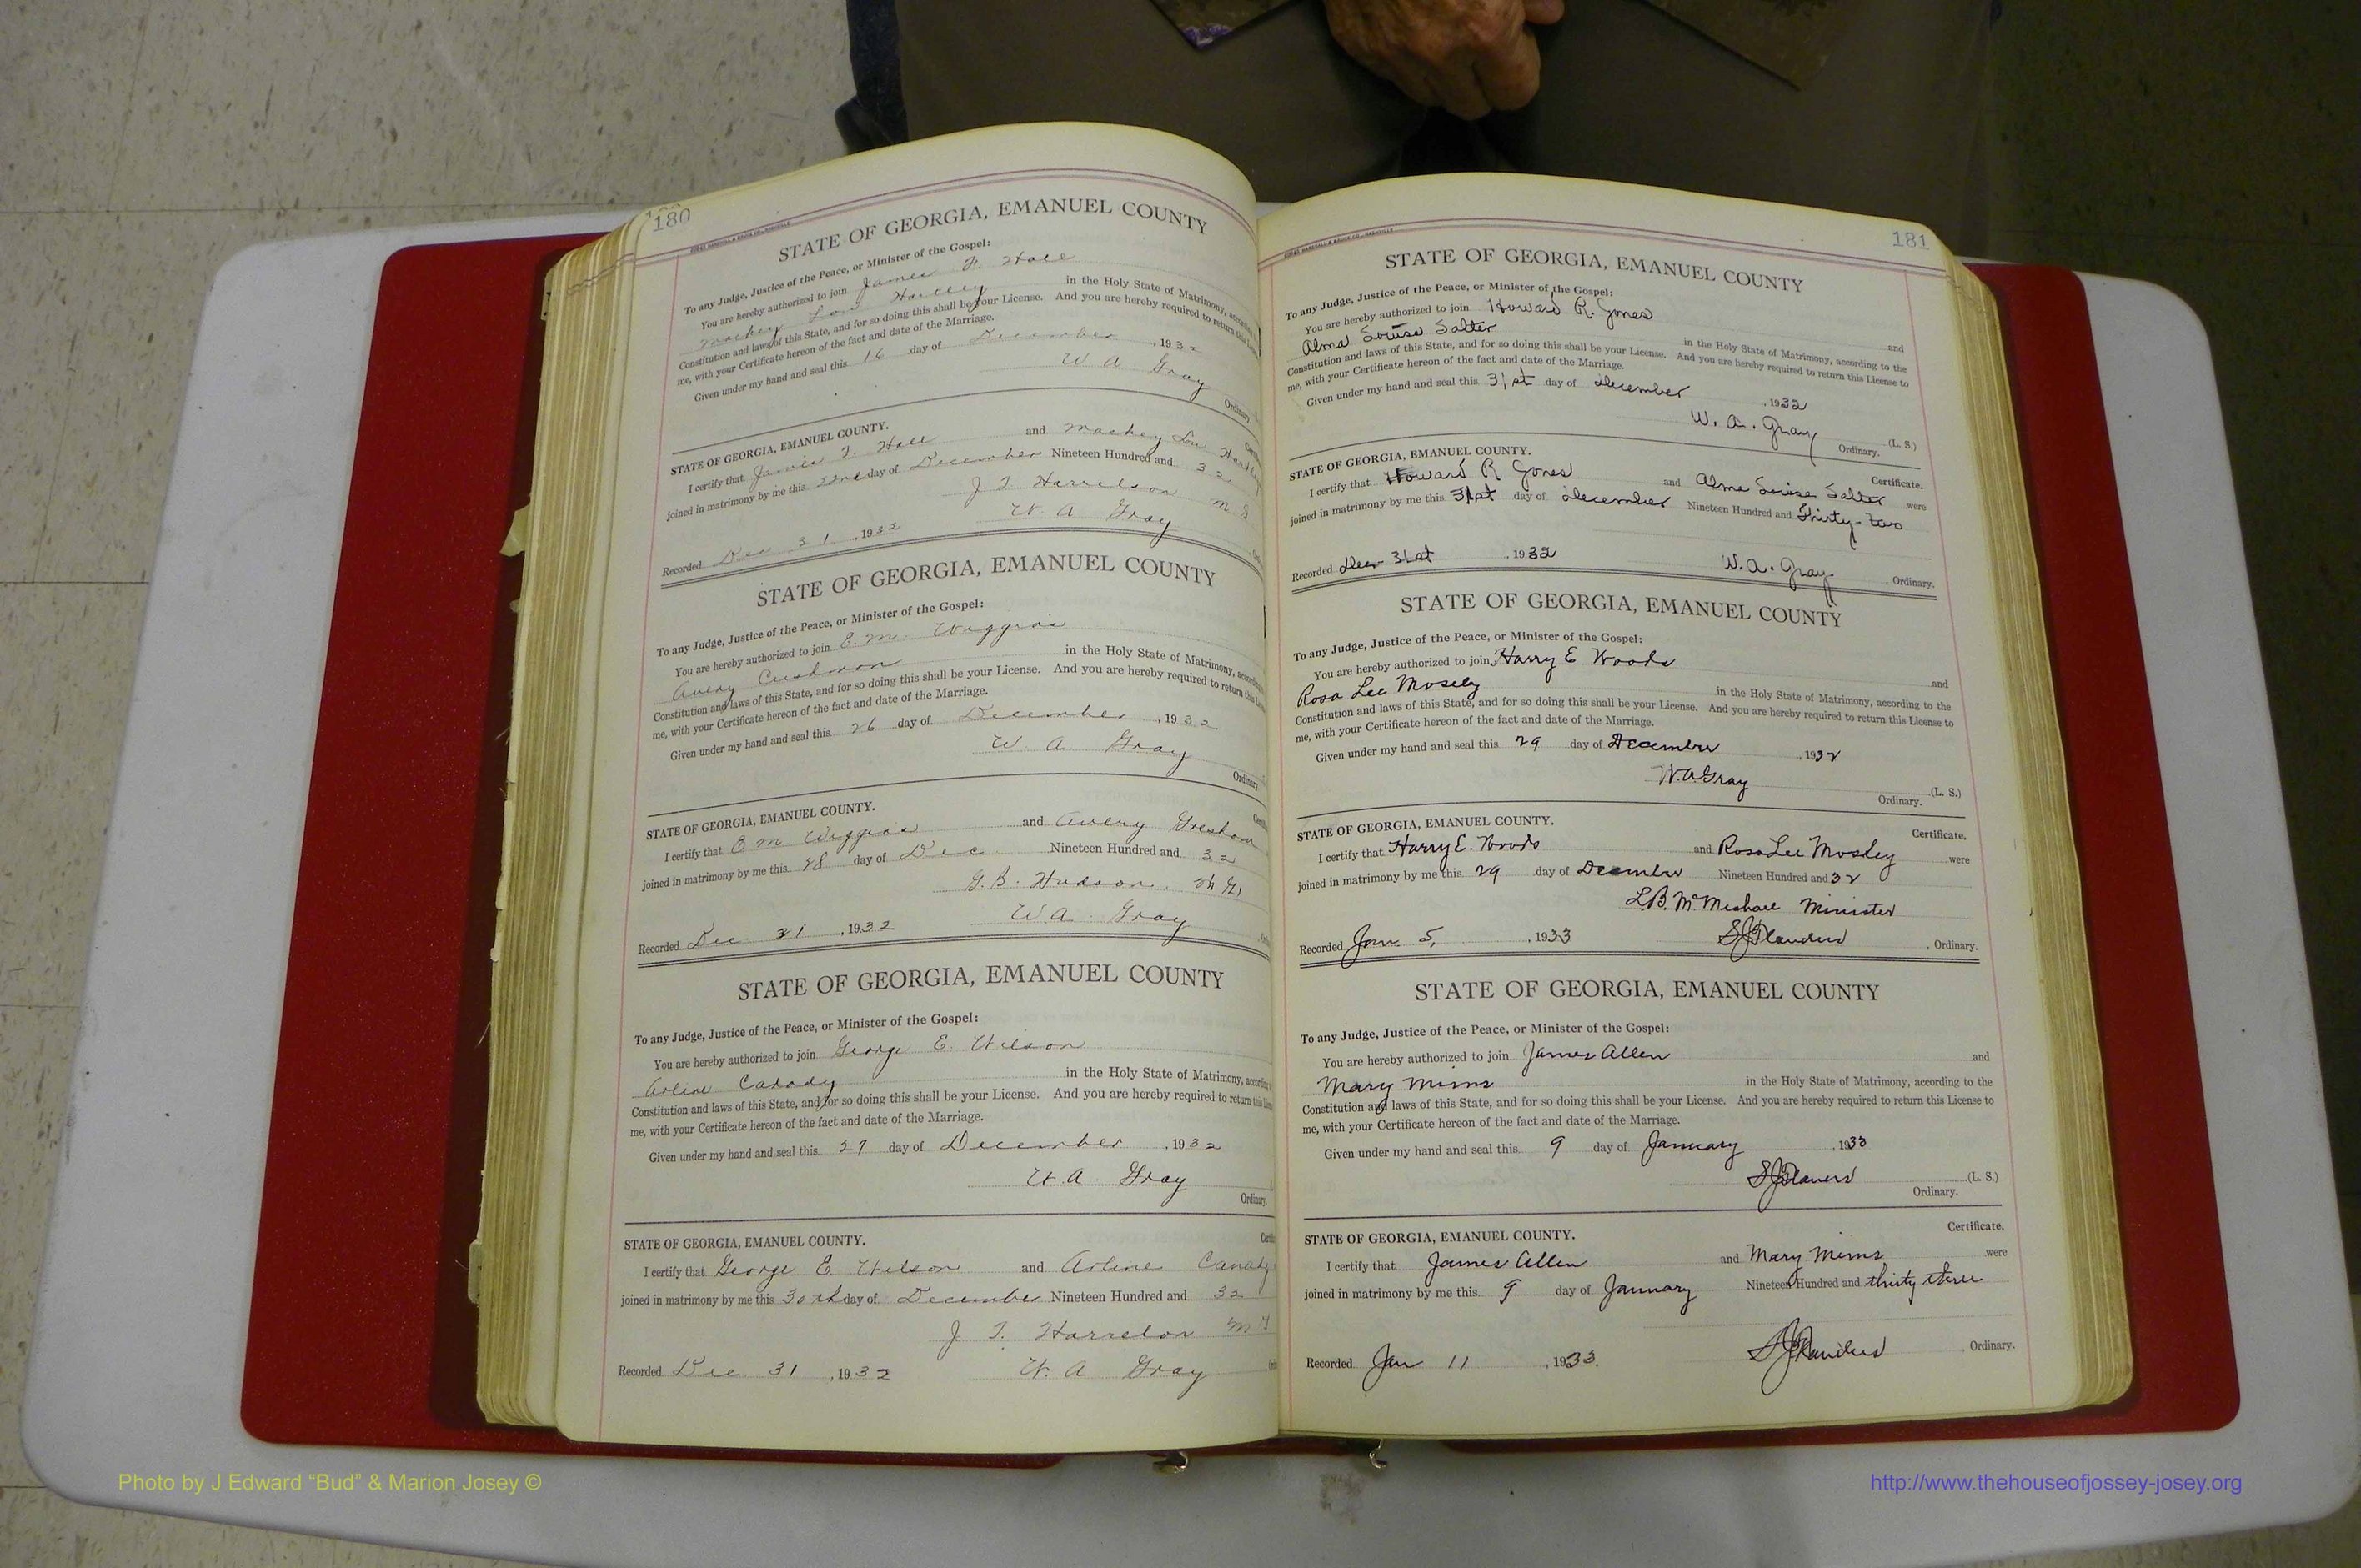 180
STATE OF GEORGIA, EMANUEL COUNTY
To any Judge, Justice of the Peace, or Minister of the Gospel:
You are hereby authorized to join James F. Hall
Lou in the Holy State of Matrimony,
Constitution and laws of this State, and for so doing this shall be your License. And you are hereby required to return
me, with your Certificate hereon of the fact and date of the Marriage.
Given under my hand and seal this 16 day of December, 1932
W A Gray
Ordinary.
STATE OF GEORGIA, EMANUEL COUNTY.
I certify that James F. Hall and Lou
joined in matrimony by me this 22nd day of December Nineteen Hundred and 32
J T Harrelson M G
W A Gray
Recorded Dec 31, 1932
STATE OF GEORGIA, EMANUEL COUNTY
To any Judge, Justice of the Peace, or Minister of the Gospel:
You are hereby authorized to join E. M. Wiggins
Avery in the Holy State of Matrimony,
Constitution and laws of this State, and for so doing this shall be your License. And you are hereby required to return
me, with your Certificate hereon of the fact and date of the Marriage.
Given under my hand and seal this 26 day of December, 1932
W A Gray
Ordinary
STATE OF GEORGIA, EMANUEL COUNTY.
I certify that E M Wiggins and Avery
joined in matrimony by me this 28 day of Dec Nineteen Hundred and 32
G. B. Hudson M G,
W A Gray
Recorded Dec 31, 1932
STATE OF GEORGIA, EMANUEL COUNTY
To any Judge, Justice of the Peace, or Minister of the Gospel:
You are hereby authorized to join George E. Wilson
Arline Canady in the Holy State of Matrimony,
Constitution and laws of this State, and for so doing this shall be your License. And you are hereby required to return
me, with your Certificate hereon of the fact and date of the Marriage.
Given under my hand and seal this 27 day of December, 1932
W. A. Gray
Ordinary.
STATE OF GEORGIA, EMANUEL COUNTY.
I certify that George E. Wilson and Arline Canady
joined in matrimony by me this 30th day of December Nineteen Hundred and 32
J. T. Harrelson
W. A Gray
Recorded Dec 31, 1932
181
STATE OF GEORGIA, EMANUEL COUNTY
To any Judge, Justice of the Peace, or Minister of the Gospel:
You are hereby authorized to join Howard R. Jones and
Alma Louise Salter in the Holy State of Matrimony, according to the
Constitution and laws of this State, and for so doing this shall be your License. And you are hereby required to return this License to
me, with your Certificate hereon of the fact and date of the Marriage.
Given under my hand and seal this 31st day of December, 1932
W. A. Gray (L. S.)
Ordinary.
STATE OF GEORGIA, EMANUEL COUNTY. Certificate.
I certify that Howard R Jones and Alma Louise Salter were
joined in matrimony by me this 31st day of December Nineteen Hundred and Thirty-two
Recorded Dec-31st, 1932 W. A. Gray, Ordinary.
STATE OF GEORGIA, EMANUEL COUNTY
To any Judge, Justice of the Peace, or Minister of the Gospel:
You are hereby authorized to join Harry E Woods and
Rosa Lee Mosely in the Holy State of Matrimony, according to the
Constitution and laws of this State, and for so doing this shall be your License. And you are hereby required to return this License to
me, with your Certificate hereon of the fact and date of the Marriage.
Given under my hand and seal this 29 day of December, 1932
W. A Gray (L. S.)
Ordinary.
STATE OF GEORGIA, EMANUEL COUNTY. Certificate.
I certify that Harry E. Woods and Rosa Lee Mosley were
joined in matrimony by me this 29 day of December Nineteen Hundred and 32
L. B. Minister
Recorded Jan 5, 1933 Flanders, Ordinary.
STATE OF GEORGIA, EMANUEL COUNTY
To any Judge, Justice of the Peace, or Minister of the Gospel:
You are hereby authorized to join James Allen and
Mary Mims in the Holy State of Matrimony, according to the
Constitution and laws of this State, and for so doing this shall be your License. And you are hereby required to return this License to
me, with your Certificate hereon of the fact and date of the Marriage.
Given under my hand and seal this 9 day of January, 1933
(L. S.)
Ordinary.
STATE OF GEORGIA, EMANUEL COUNTY. Certificate.
I certify that James Allen and Mary Mims were
joined in matrimony by me this 9 day of January Nineteen Hundred and thirty three
Recorded Jan 11, 1933. Flanders, Ordinary.
Photo by J Edward “Bud” & Marion Josey ©
http://www.thehouseofjossey-josey.org